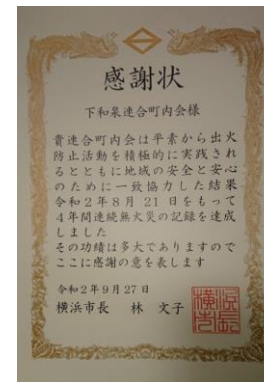 感謝状
下和泉連合町内会様
貴連合町内会は平素から出火
防止活動を積極的に実践され
るとともに地域の安全と安心
のために一致協力した結果
令和2年8月21日をもって
4年間連続無火災の記録を達成
しました
その功績は多大でありますので
ここに感謝の意を表します
令和2年9月27日
横浜市長 林 文子